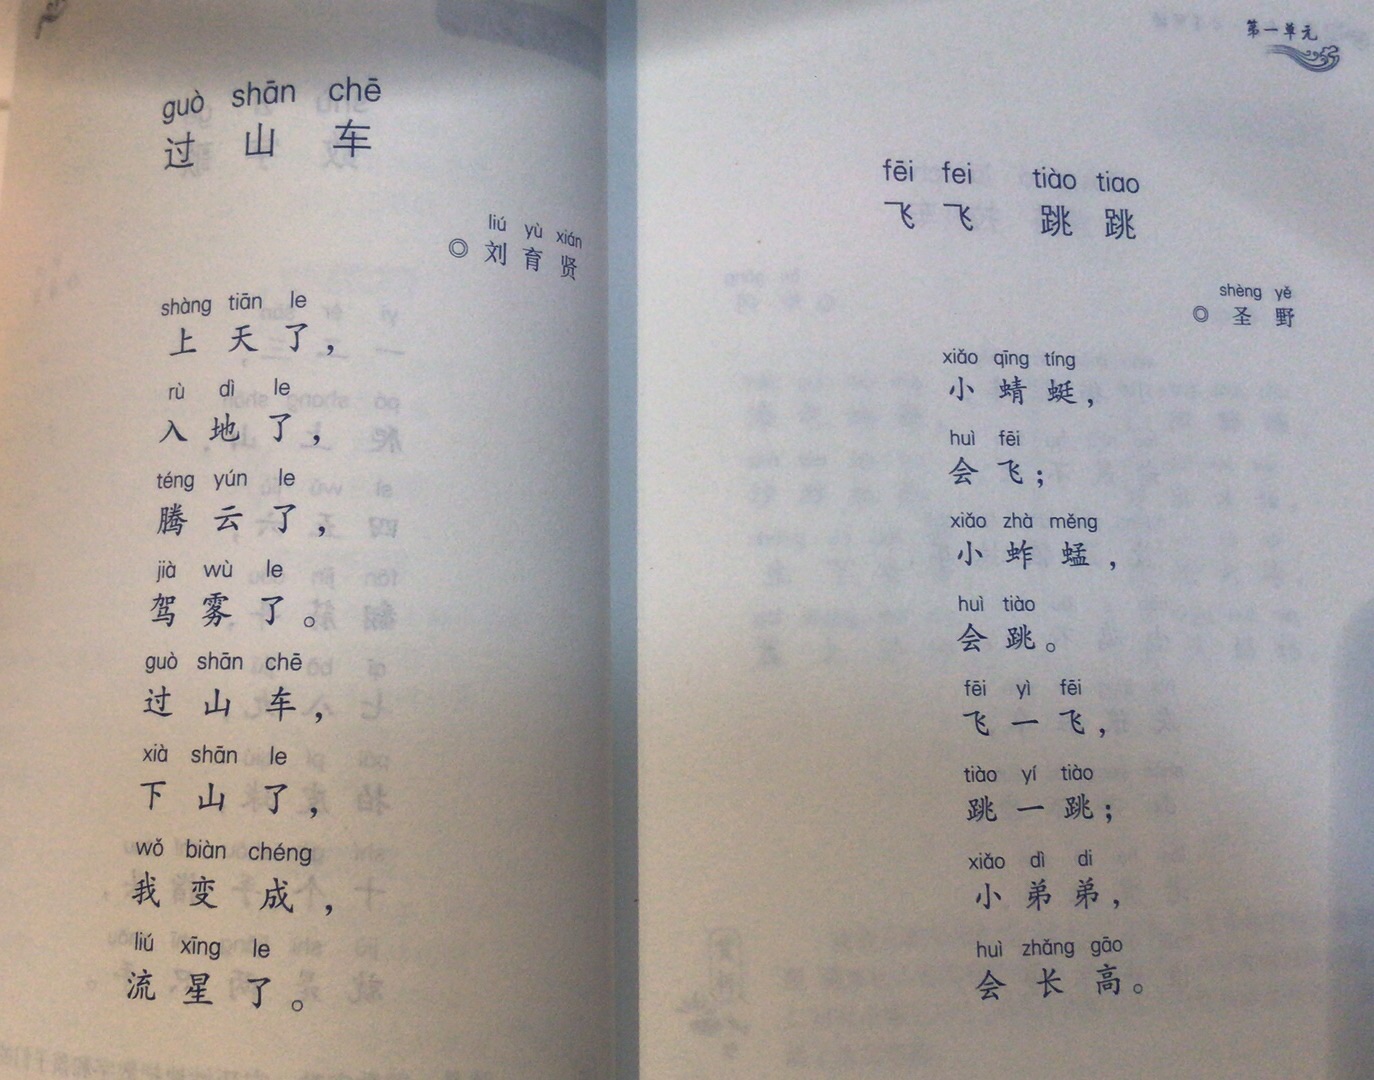 guò shān chē
过 山 车
liú yù xián
◎ 刘 育 贤
shàng tiān le
上 天 了，
rù dì le
入 地 了，
téng yún le
腾 云 了，
jià wù le
驾 雾 了。
guò shān chē
过 山 车，
xià shān le
下 山 了，
wǒ biàn chéng
我 变 成，
liú xīng le
流 星 了。
第一单元
fēi fei tiào tiao
飞 飞 跳 跳
shèng yě
◎ 圣 野
xiǎo qīng tíng
小 蜻 蜓，
huì fēi
会 飞；
xiǎo zhà měng
小 蚱 蜢，
huì tiào
会 跳。
fēi yì fēi
飞 一 飞，
tiào yí tiào
跳 一 跳；
xiǎo dì di
小 弟 弟，
huì zhǎng gāo
会 长 高。